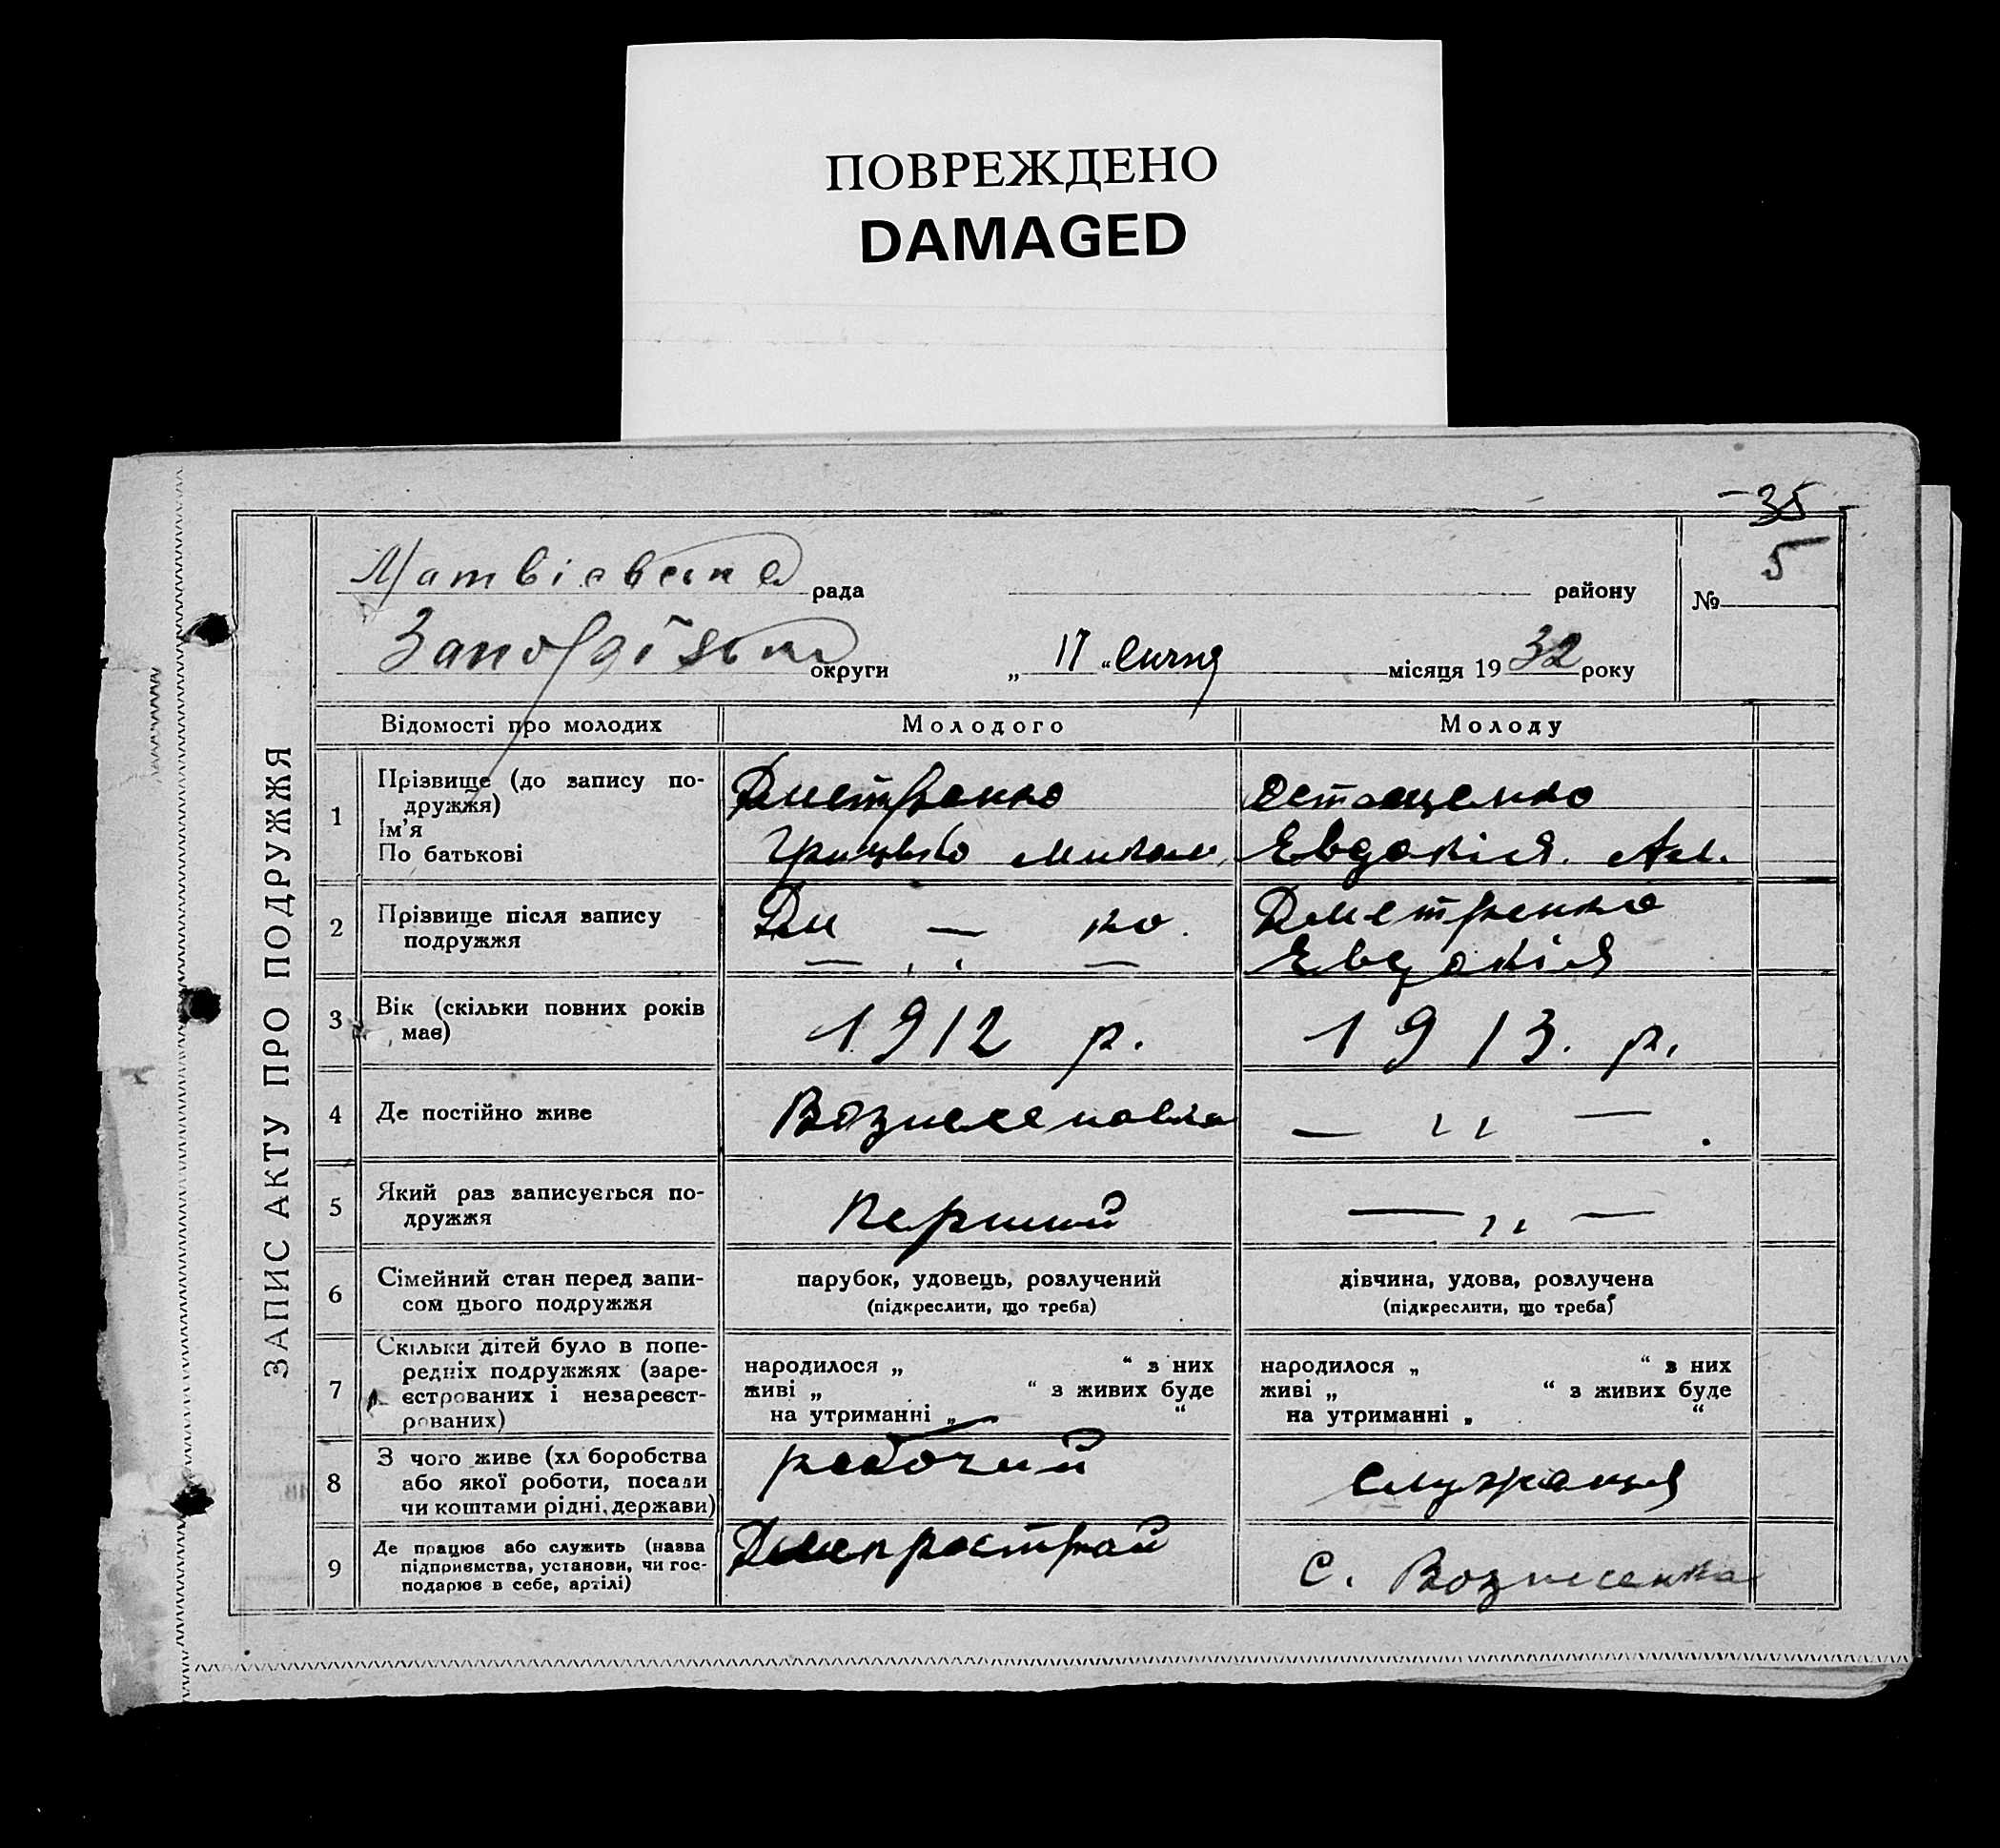 ПОВРЕЖДЕНО
DAMAGED
35
ЗАПИС АКТУ ПРО ПОДРУЖЖЯ
Матвієвська рада району
№ 5
Запорізьк округи „ 17 “ січня місяця 19 32 року
Відомості про молодих Молодого Молоду
1 Прізвище (до запису по-
дружжя)
Ім'я
По батькові
Дмитренко Остащенко
Грицько Микол. Евдокія. Ам.
2 Прізвище після запису
подружжя
Дм — ко. Дмитренко
— ,, — Евдокія
3 Вік (скільки повних років
має)
1912 р. 1913. р.
4 Де постійно живе Вознесеновка — ,, —
5 Який раз записується по-
дружжя
перший — ,, —
6 Сімейний стан перед запи-
сом цього подружжя
парубок, удовець, розлучений дівчина, удова, розлучена
(підкреслити, що треба) (підкреслити, що треба)
7 Скільки дітей було в попе-
редніх подружжях (заре-
єстрованих і незареєст-
рованих)
народилося „ “ з них народилося „ “ з них
живі „ “ з живих буде живі „ “ з живих буде
на утриманні „ “ на утриманні „ “
8 З чого живе (хл боробства
або якої роботи, посади
чи коштами рідні, держави)
рабочий служащя
9 Де працює або служить (назва
підприємства, установи, чи гос-
подарює в себе, артілі)
Днепрострой с. Вознесенка